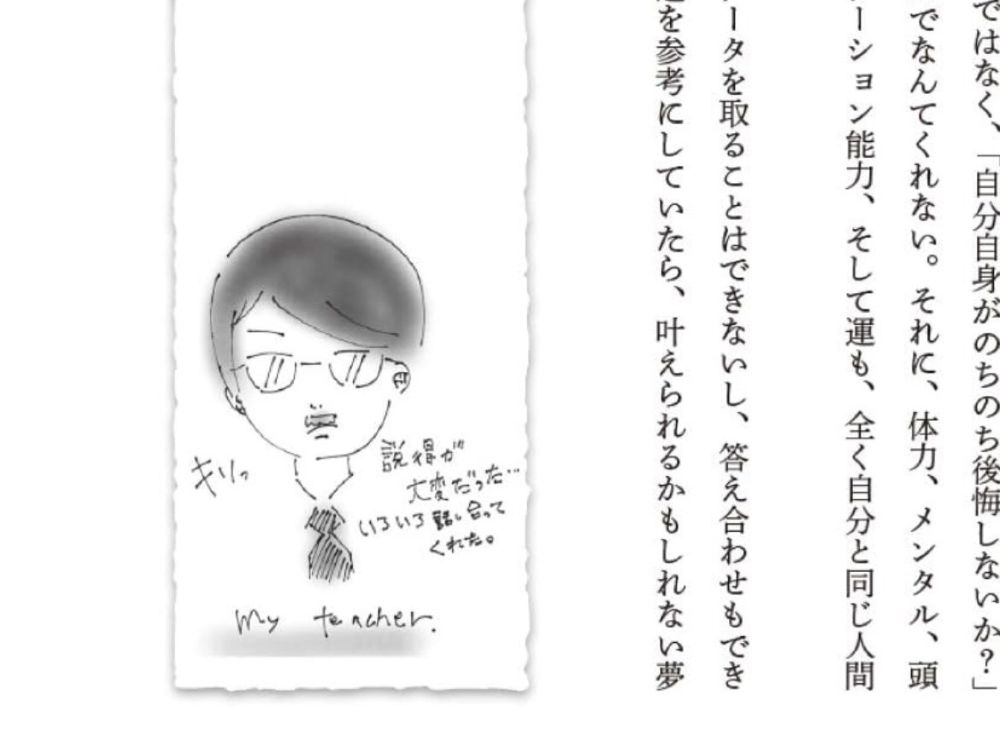 ではなく、「自分自身がのちのち後悔しないか？」
でなんてくれない。それに、体力、メンタル、頭
ーション能力、そして運も、全く自分と同じ人間
ータを取ることはできないし、答え合わせもでき
を参考にしていたら、叶えられるかもしれない夢
キリッ
説得が
大変だった…
いろいろ話し合って
くれた。
My teacher.